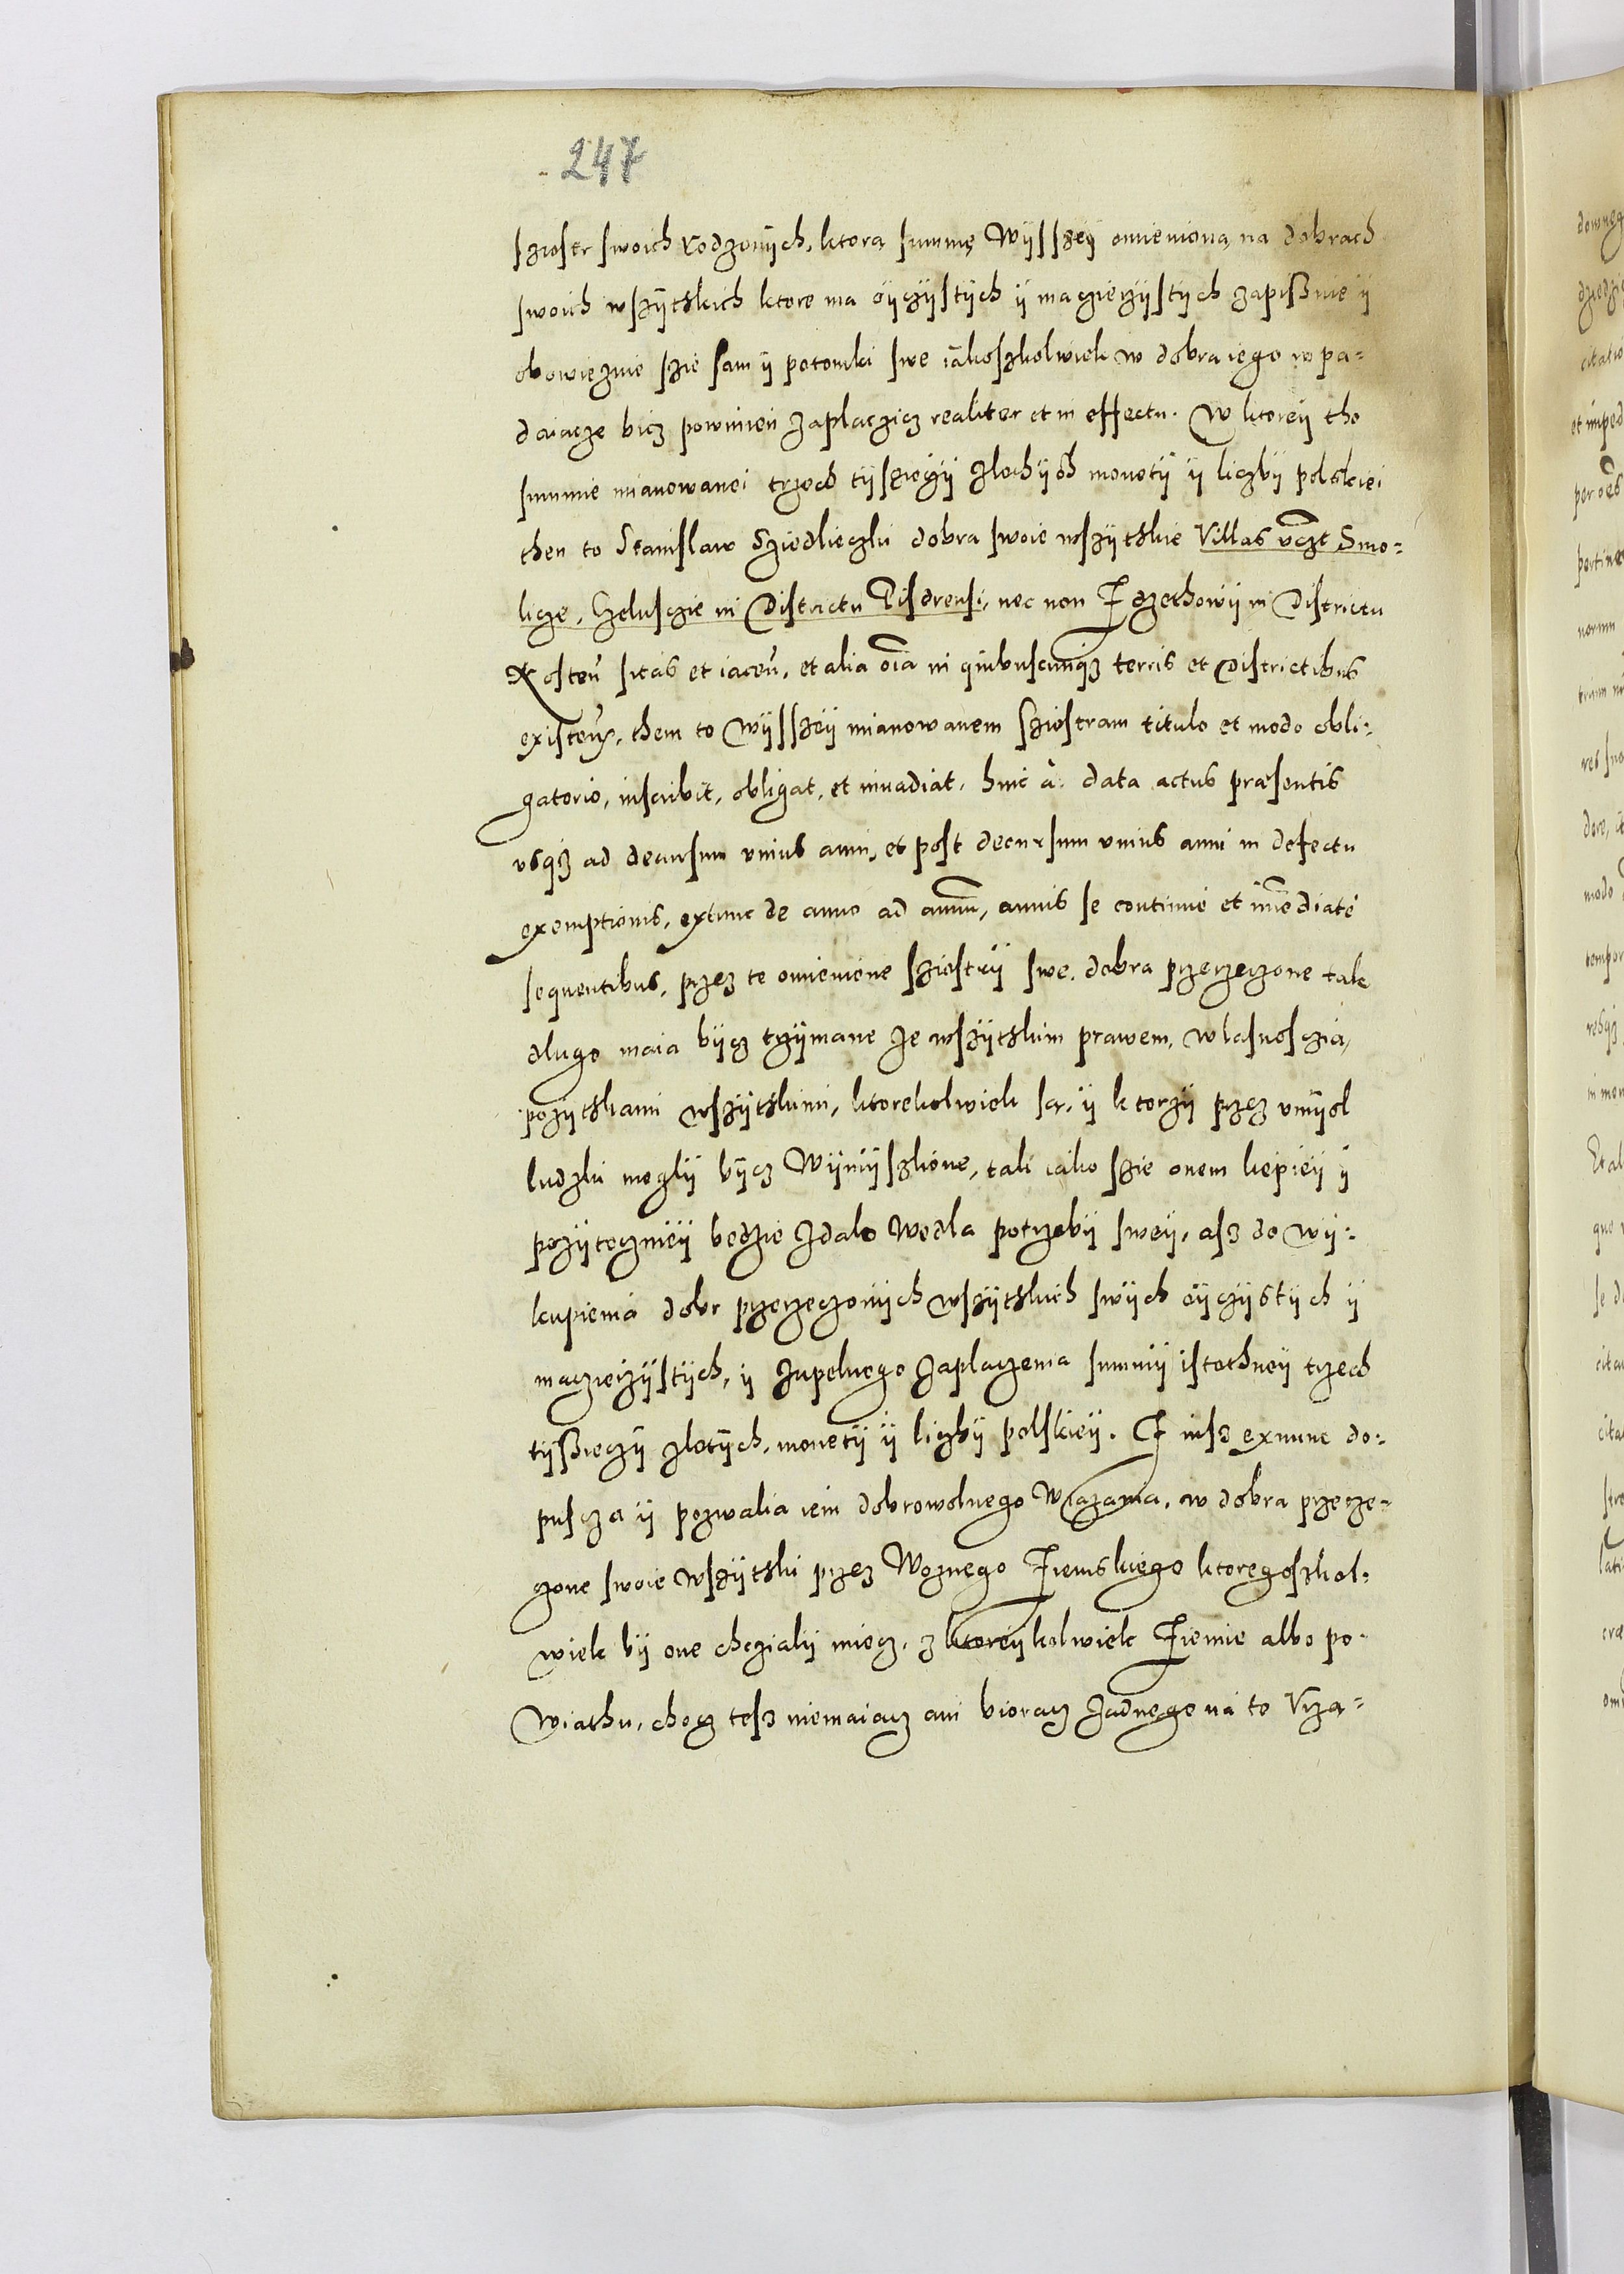 247
sziostr swoich rodzonÿch, ktorą summę wÿsszeÿ omieniona na dobrach
swoich wszÿtskich ktore ma oÿczÿstÿch ÿ maczierzÿstÿch zapissuie ÿ
obowięzuie szie sam ÿ potomki swe iakoszkolwiek w dobra iego wpa=
daiącze bicz powinien zaplaczicz realiter et in effectu. W ktoreÿ tho
summie mianowanei trzech tÿsięczÿ zlothÿch monetÿ ÿ liczbÿ polskiei
then to Stanislaw Sziedlieczki dobra swoie wszÿtskie Villas vczt Smo=
licze, Czelusczie in Districtu Pisdrensi, nec non Zdzethowÿ in Districtu
Kosten sitas et iacen, et alia oīa in quibuscunqȝ terris et Districtibus
existen, them to wÿsszeÿ mianowanem Sziostram titulo et modo obli=
gatorio, inscribit, obligat, et inuadiat, hinc à data actus præsentis
vsqȝ ad decursum vnius anni, et post decursum vnius anni in defectu
exemptionis, extunc de anno ad annū, annis se continuè et im̄ediatè
sequentibus, przez te omienione sziostrÿ swe dobra przerzeczone tak
dlugo maia bÿcz trzÿmane ze wszÿtskim prawem, wlasnosczia,
pozÿtskami wszÿtskimi, ktorekolwiek są, ÿ ktorzÿ przez vmÿsl
ludzki moglÿ bÿcz wÿmÿszlione, tak iako szie onem liepieÿ ÿ
pozÿtecznieÿ bedzie zdalo wedla potrzebÿ sweÿ, asz do wÿ=
kupienia dobr przerzeczonÿch wszÿtskich swÿch oÿczÿstÿch ÿ
maczierzÿstÿch, ÿ zupelnego zaplaczenia summÿ istothneÿ trzech
tÿssieczÿ zlotÿch, monetÿ ÿ liczbÿ polskieÿ. Iusz exnunc do=
puscza ÿ pozwalia iem dobrowolnego wiązania, w dobra przerze=
czone swoie wszÿtski przez Woznego Ziemskiego ktoregoszkol=
wiek bÿ one chczialÿ miecz, z ktoreÿkolwiek Ziemie albo po=
wiathu, chocz tesz niemaiacz ani bioracz zadnego na to Vrzą=